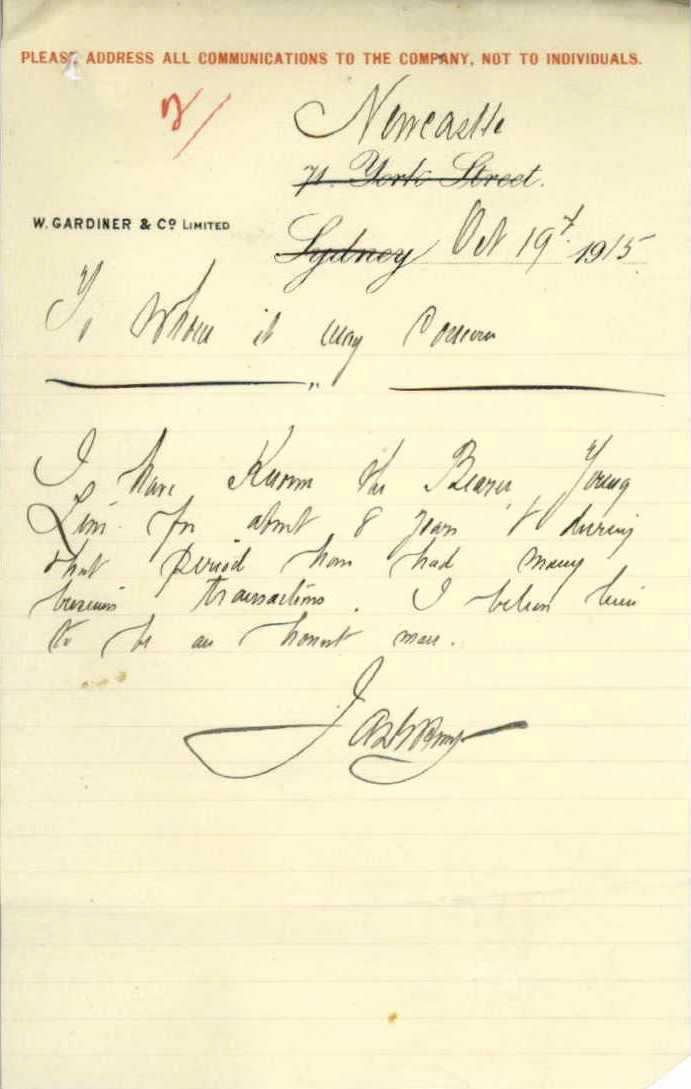 PLEASE ADDRESS ALL COMMUNICATIONS TO THE COMPANY, NOT TO INDIVIDUALS.
2/
Newcastle
71. York Street.
W. GARDINER & Co LIMITED
Sydney Oct 19th 1915
To Whom it may Concern
I have Known the Bearer, Young
Lim for about 8 years & during
that period have had many
business transactions. I believe him
to be an honest man.